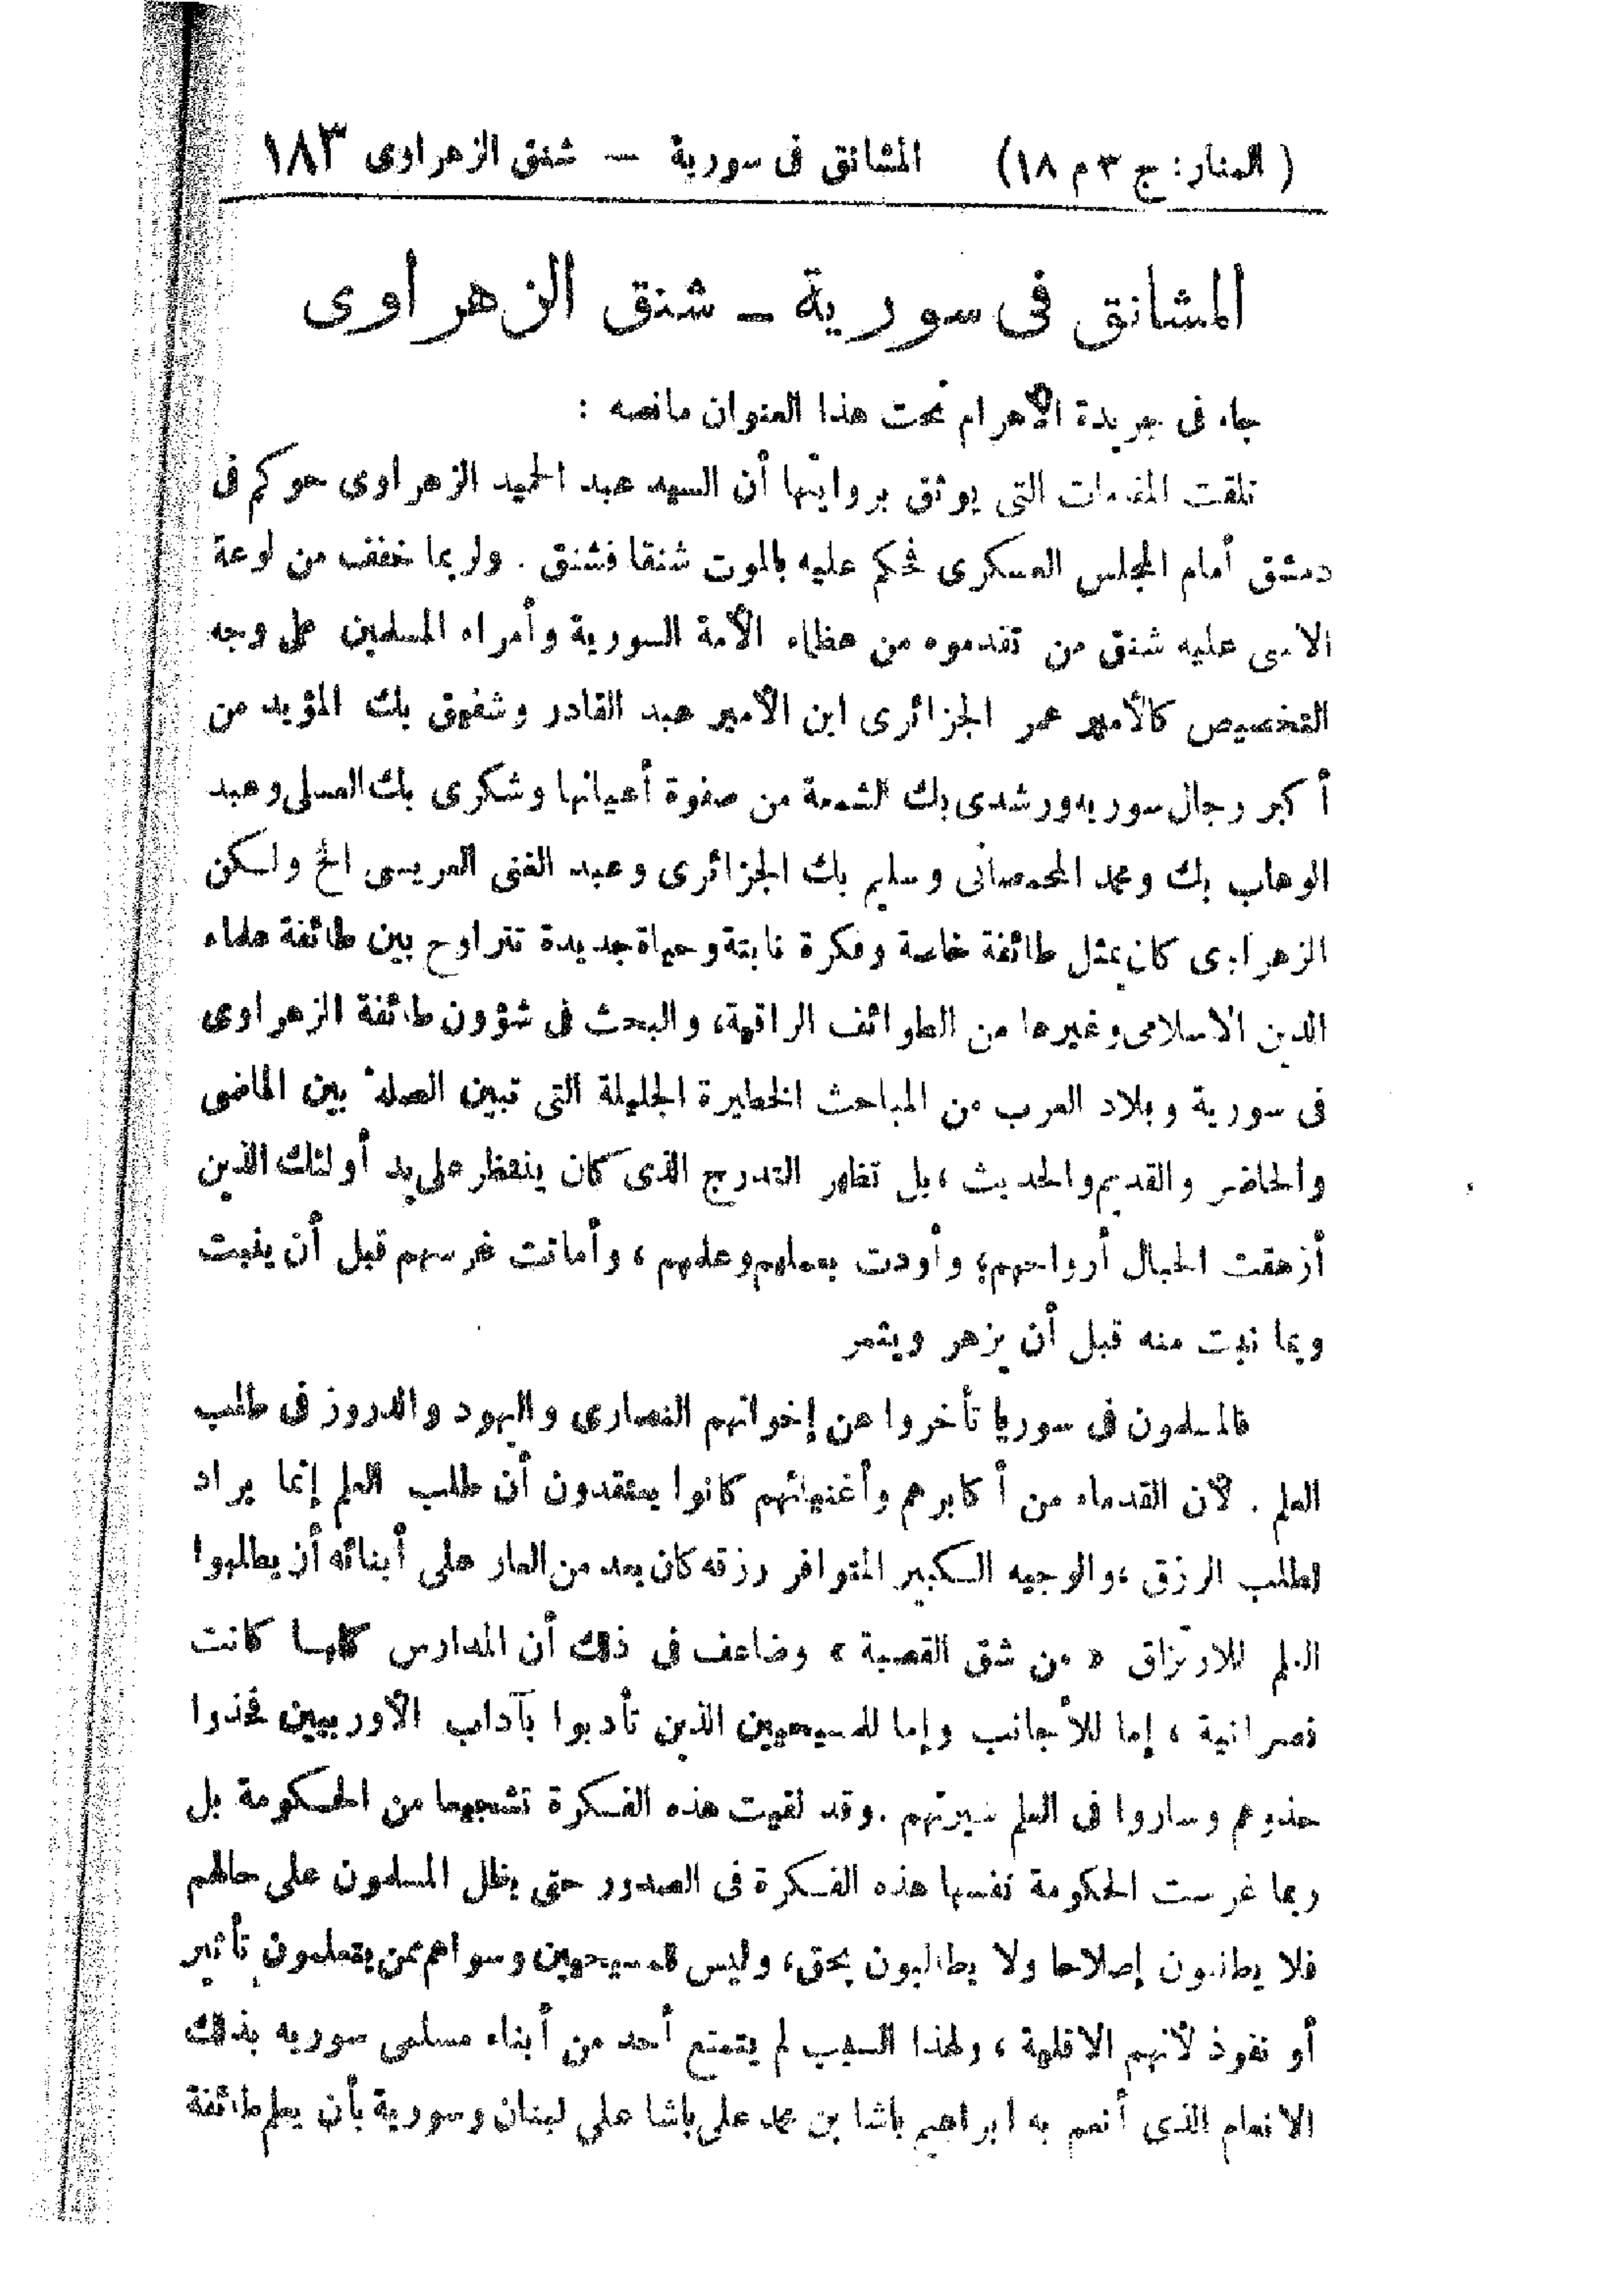 ( المنار : ج ٣ م ١٨ ) المشانق فى سورية — شنق الزهراوى ١٨٣
المشانق فى سورية – شنق الزهراوى
جاء فى جريدة الأهرام تحت هذا العنوان مانصه :
تلقت المقامات التى يوثق بروايتها أن السيد عبد الحميد الزهراوى حوكم فى
دمشق أمام المجلس العسكرى فحكم عليه بالموت شنقا فشنق . ولربما خفف من لوعة
الاسى عليه شنق من تقدموه من عظاء الأمة السورية وأمراء المسلمين على وجه
التخصيص كالأمير عمر الجزائرى ابن الأمير عبد القادر وشفيق بك المؤيد من
أكبر رجال سوريه ورشدى بك الشمعة من صفوة أعيانها وشكرى بك العسلى وعبد
الوهاب بك ومحمد المحمصانى وسليم بك الجزائرى وعبد الغنى العريسى الخ ولكن
الزهراوى كان يمثل طائفة خاصة وفكرة ثابتة وحياة جديدة تتراوح بين طائفة علماء
الدين الاسلامى وغيرها من الطوائف الراقية، والبحث فى شؤون طائفة الزهراوى
فى سورية وبلاد العرب من المباحث الخطيرة الجليلة التى تبين الصلة بين الماضى
والحاضر والقديم والحديث ، بل تظهر التدرج الذى كان ينتظر على يد أولئك الذين
أزهقت الحبال أرواحهم، وأودت بعملهم وعلمهم ، وأماتت غرسهم قبل أن ينبت
وبما نبت منه قبل أن يزهر ويثمر
فالمسلمون فى سوريا تأخروا عن إخوانهم النصارى واليهود والدروز فى طلب
العلم . لأن القدماء من أكابرهم وأغنيائهم كانوا يعتقدون أن طلب العلم إنما يراد
لطلب الرزق ، والوجيه الكبير المتوافر رزقه كان يعد من العار على أبنائه أن يطلبوا
العلم للارتزاق « من شق القصبة » وضاعف فى ذلك أن المدارس كلها كانت
نصرانية ، إما للأجانب وإما للمسيحيين الذين تأدبوا بآداب الأوربيين فحذوا
حذوهم وساروا فى العلم سيرتهم . وقد لقيت هذه الفكرة تشجيعا من الحكومة بل
ربما غرست الحكومة نفسها هذه الفكرة فى الصدور حتى يظل المسلمون على حالهم
فلا يطلبون إصلاحا ولا يطالبون بحق، وليس للمسيحيين وسواهم ممن يتعلمون تأثير
أو نفوذ لأنهم الاقلية ، ولهذا السبب لم يتمتع أحد من أبناء مسلمى سوريه بذلك
الانعام الذى أنعم به ابراهيم باشا بن محمد على باشا على لبنان وسورية بأن يعلم طائفة